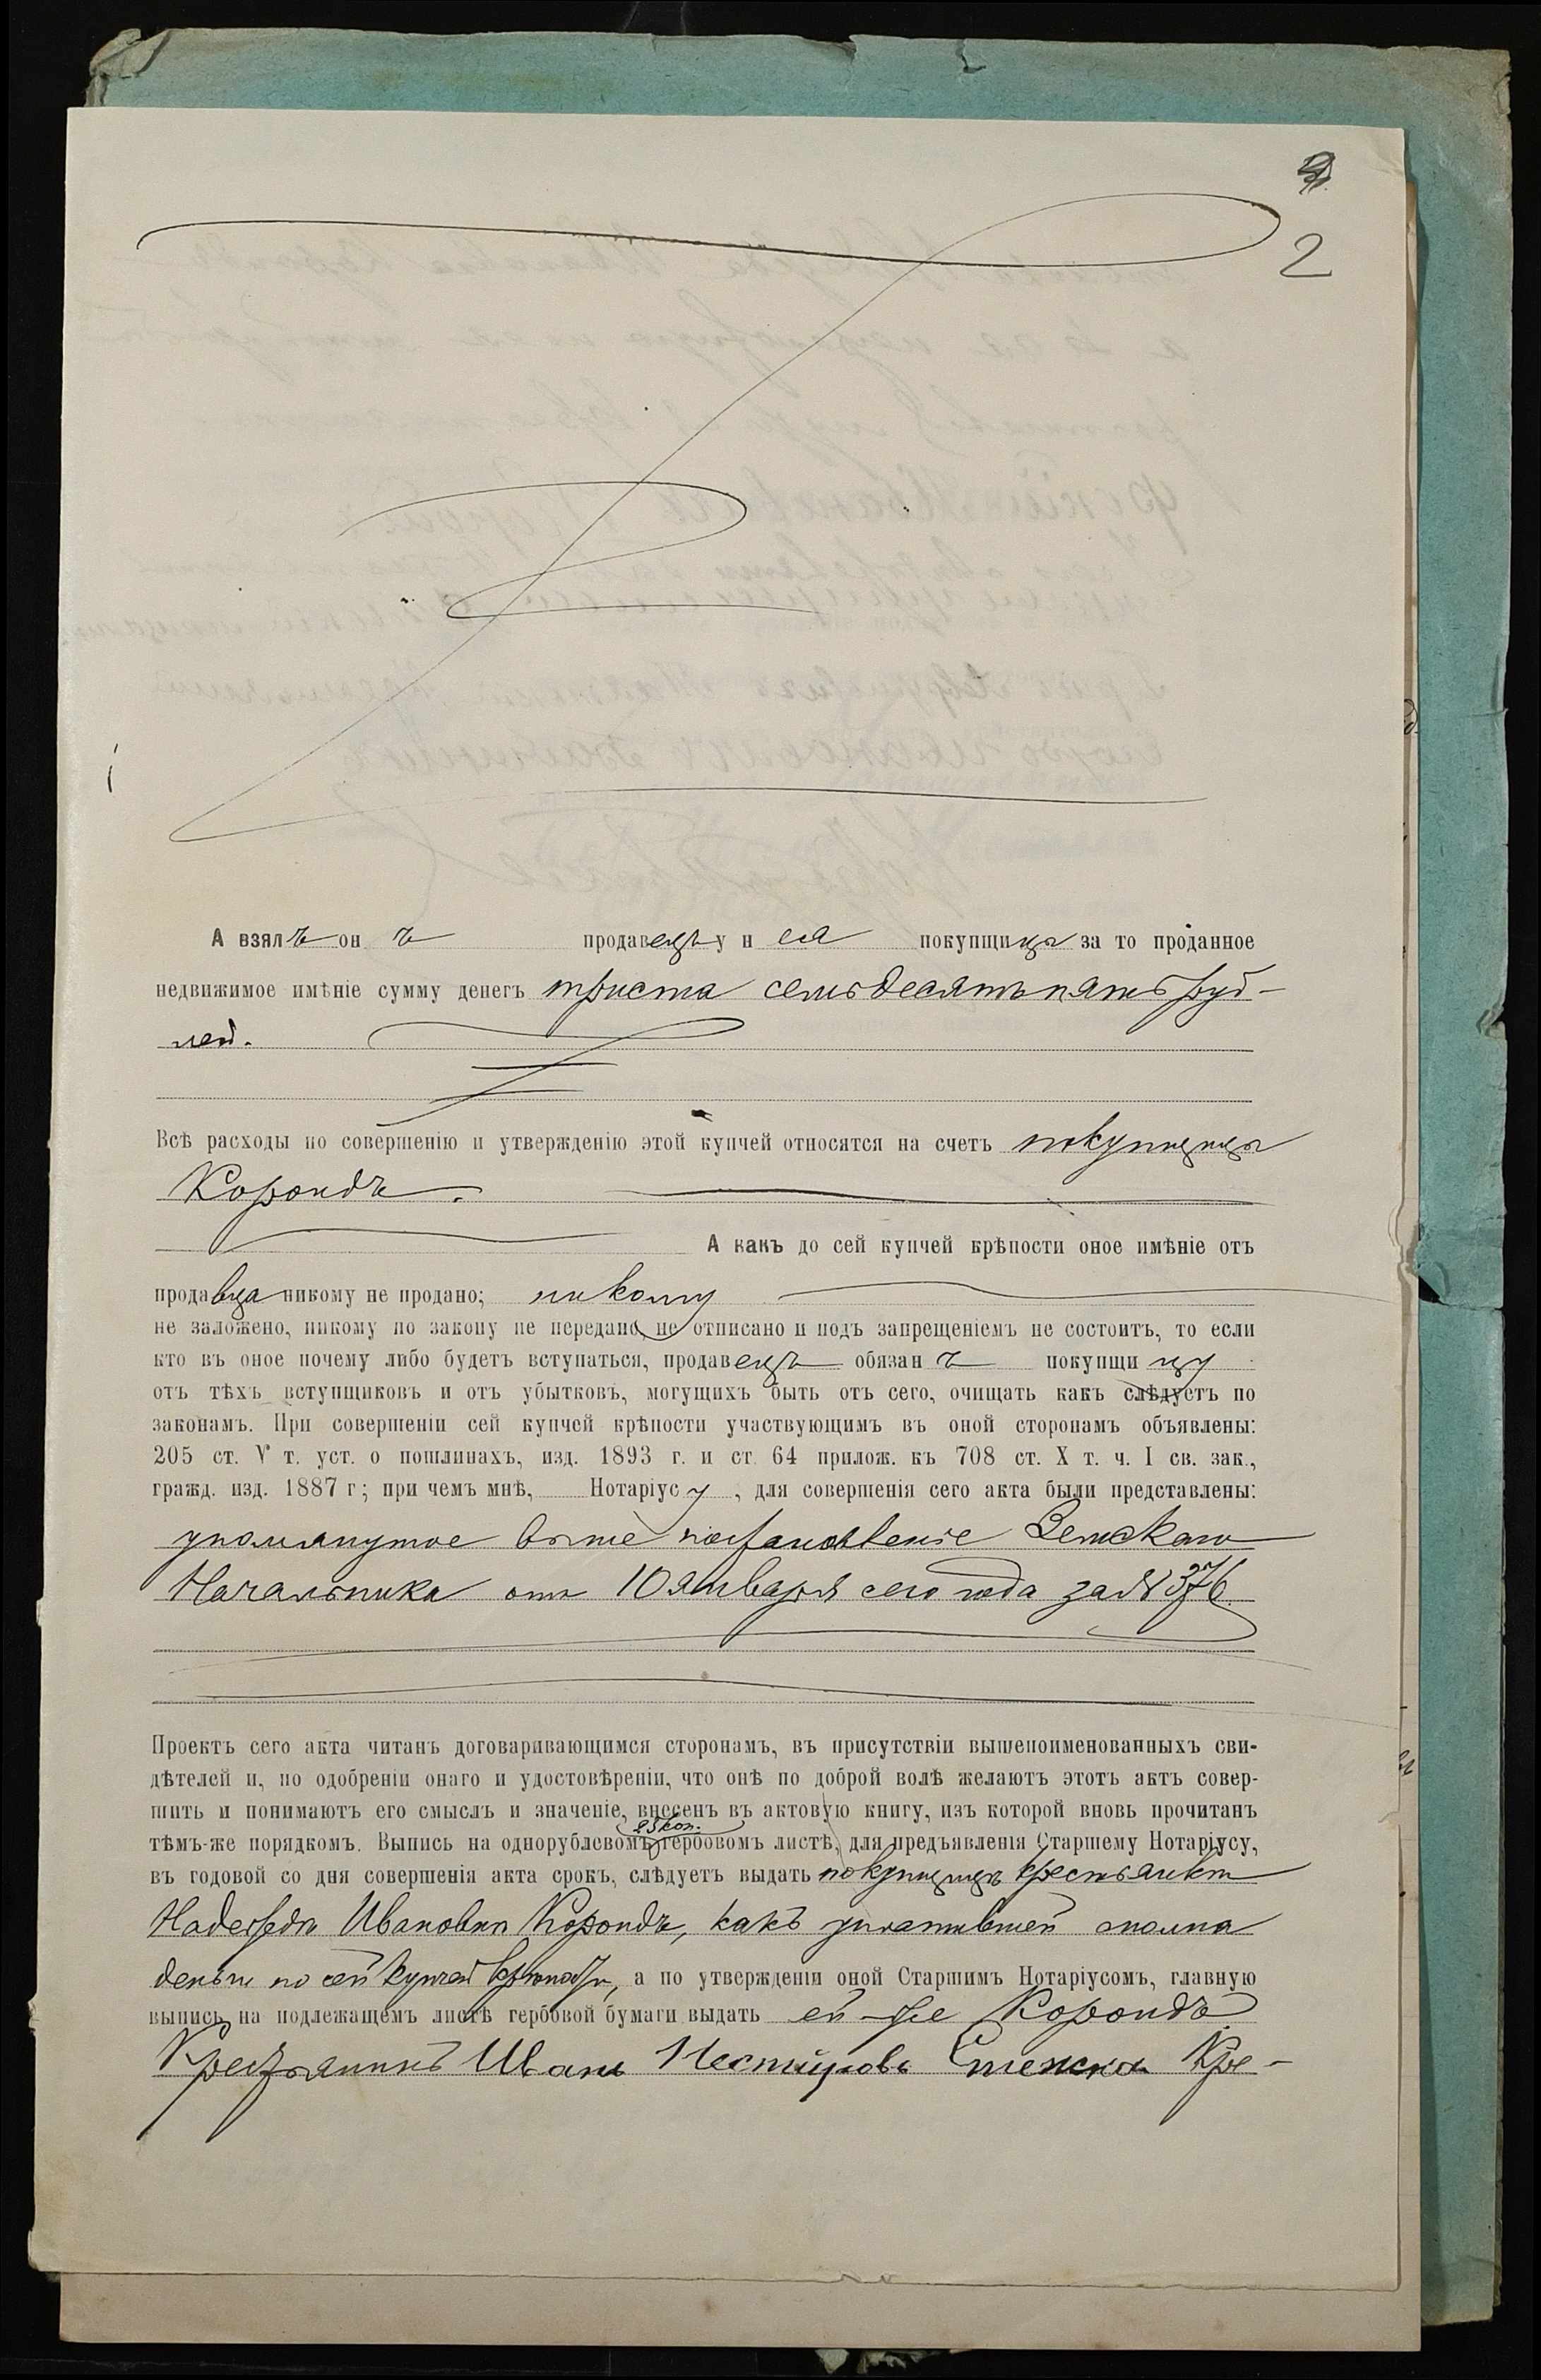 2
А взялъ онъ продавецъ у нея покупщицы за то проданное
недвижимое имѣніе сумму денегъ триста семьдесятъ пять руб-
лей.
Всѣ расходы по совершенію и утвержденію этой купчей относятся на счетъ покупщицы
Корондъ.
А какъ до сей купчей крѣпости оное имѣніе отъ
продавца никому не продано; никому
не заложено, никому по закону не передано, не отписано и подъ запрещеніемъ не состоитъ, то если
кто въ оное почему либо будетъ вступаться, продавецъ обязанъ покупщицу
отъ тѣхъ вступщиковъ и отъ убытковъ, могущихъ быть отъ сего, очищать какъ слѣдуетъ по
законамъ. При совершеніи сей купчей крѣпости участвующимъ въ оной сторонамъ объявлены:
205 ст. V т. уст. о пошлинахъ, изд. 1893 г. и ст. 64 прилож. къ 708 ст. X т. ч. I св. зак.,
гражд. изд. 1887 г; при чемъ мнѣ, Нотаріусу, для совершенія сего акта были представлены:
упомянутое выше постановленіе Земскаго
Начальника отъ 10 января сего года за № 376.
Проектъ сего акта читанъ договаривающимся сторонамъ, въ присутствіи вышепоименованныхъ сви-
дѣтелей и, по одобреніи онаго и удостовѣреніи, что онѣ по доброй волѣ желаютъ этотъ актъ совер-
шить и понимаютъ его смыслъ и значеніе, внесенъ въ актовую книгу, изъ которой вновь прочитанъ
25 коп.
тѣмъ-же порядкомъ. Выпись на однорублевомъ гербовомъ листѣ, для предъявленія Старшему Нотаріусу,
въ годовой со дня совершенія акта срокъ, слѣдуетъ выдать покупщицѣ крестьянкѣ
Надеждѣ Ивановнѣ Корондъ, какъ уплатившей сполна
деньги по сей купчей крѣпости, а по утвержденіи оной Старшимъ Нотаріусомъ, главную
выпись, на подлежащемъ листѣ гербовой бумаги выдать ей-же Корондъ
Крестьянинъ Иванъ Нестеровъ Стежка Кре-